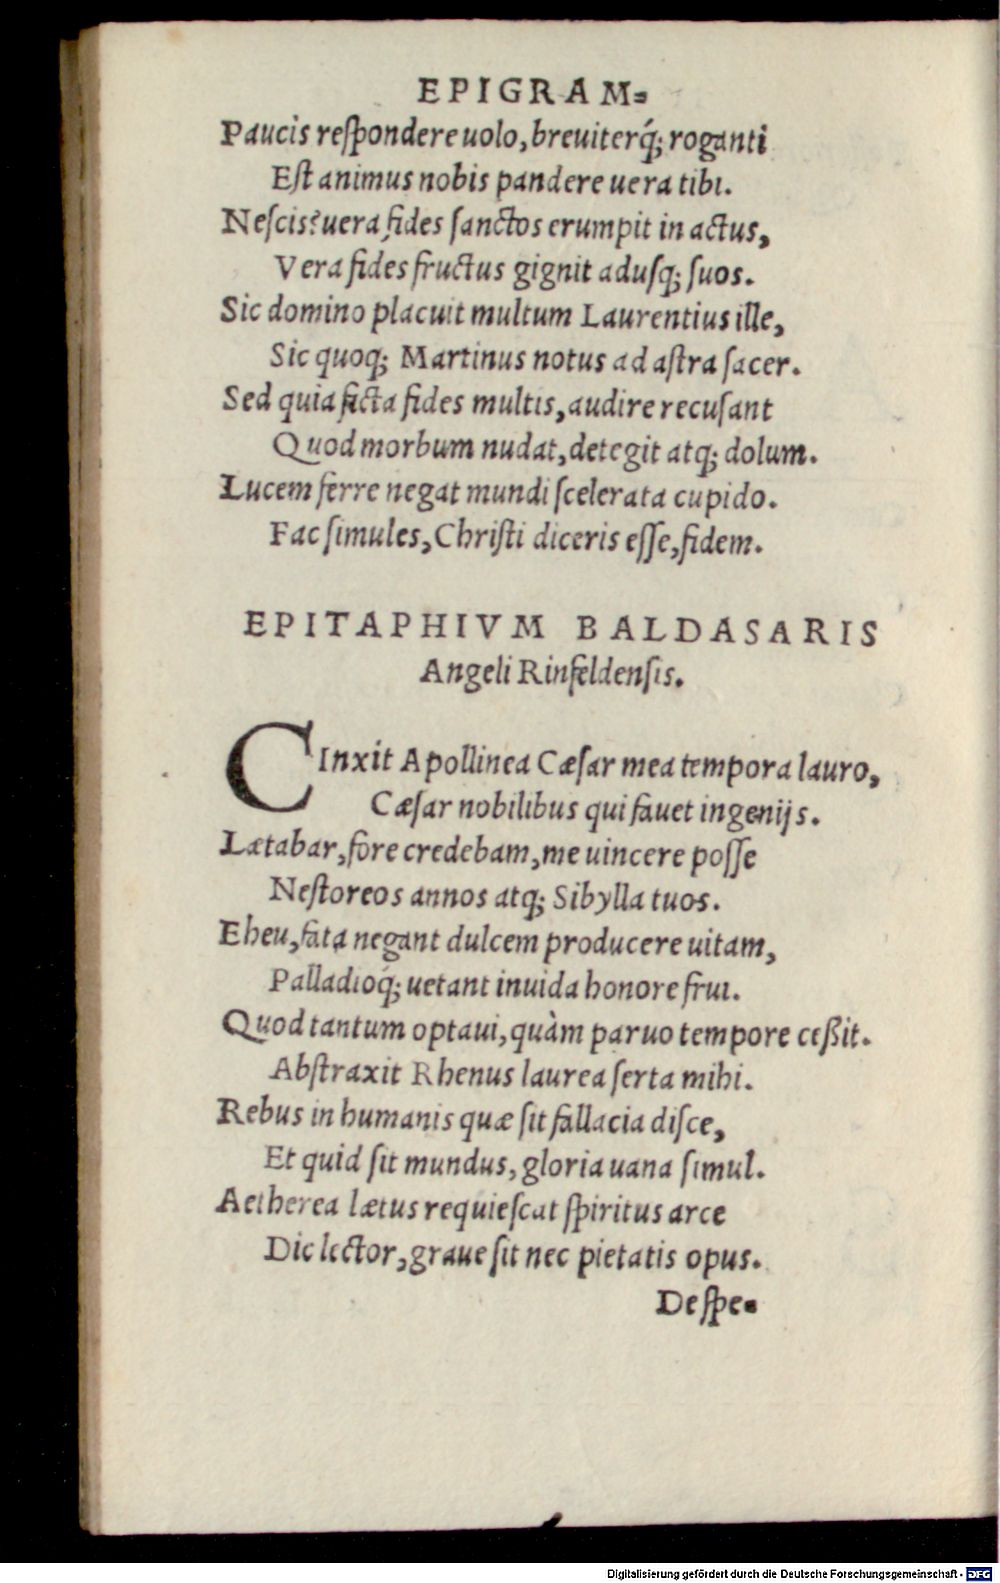 EPIGRAM=
Paucis reſpondere uolo, breuiterq́; roganti
Eſt animus nobis pandere uera tibi.
Neſcis? uera fides ſanctos erumpit in actus,
Vera fides fructus gignit aduſq; ſuos.
Sic domino placuit multum Laurentius ille,
Sic quoq; Martinus notus ad aſtra ſacer.
Sed quia ficta fides multis, audire recuſant
Quod morbum nudat, detegit atq; dolum.
Lucem ferre negat mundi ſcelerata cupido.
Fac ſimules, Chriſti diceris eſſe, fidem.
EPITAPHIVM BALDASARIS
Angeli Rinfeldenſis.
CInxit Apollinea Cæſar mea tempora lauro,
Cæſar nobilibus qui fauet ingenijs.
Lætabar, fore credebam, me uincere poſſe
Neſtoreos annos atq; Sibylla tuos.
Eheu, fata negant dulcem producere uitam,
Palladioq́; uetant inuida honore frui.
Quod tantum optaui, quàm paruo tempore ceßit.
Abſtraxit Rhenus laurea ſerta mihi.
Rebus in humanis quæ ſit fallacia diſce,
Et quid ſit mundus, gloria uana ſimul.
Aetherea lætus requieſcat ſpiritus arce
Dic lector, graue ſit nec pietatis opus.
Deſpe=
Digitalisierung gefördert durch die Deutsche Forschungsgemeinschaft - DFG